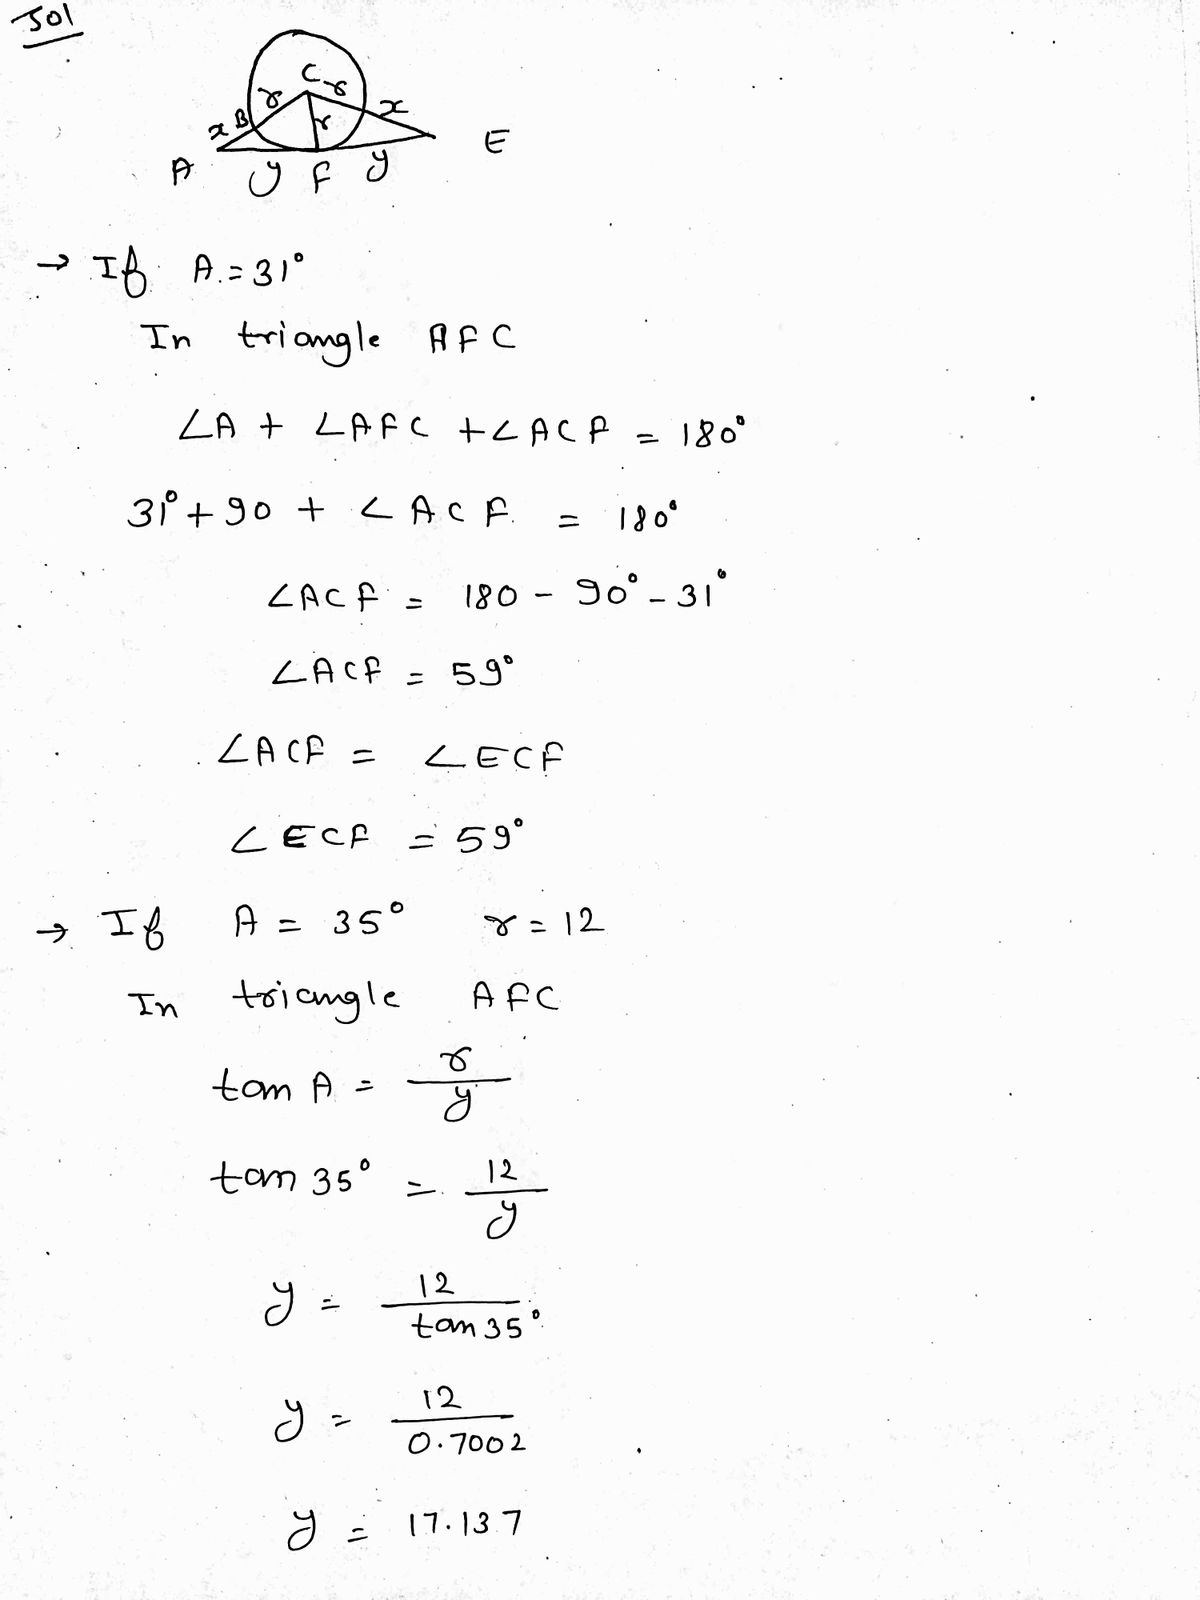 Sol
C
r r
x B r x
A y F y E
→ If A = 31°
In triangle AFC
∠A + ∠AFC + ∠ACF = 180°
31° + 90 + ∠ACF = 180°
∠ACF = 180 - 90° - 31°
∠ACF = 59°
∠ACF = ∠ECF
∠ECF = 59°
→ If A = 35° r = 12
In triangle AFC
tan A = r/y
tan 35° = 12/y
y = 12/tan 35°
y = 12/0.7002
y = 17.137